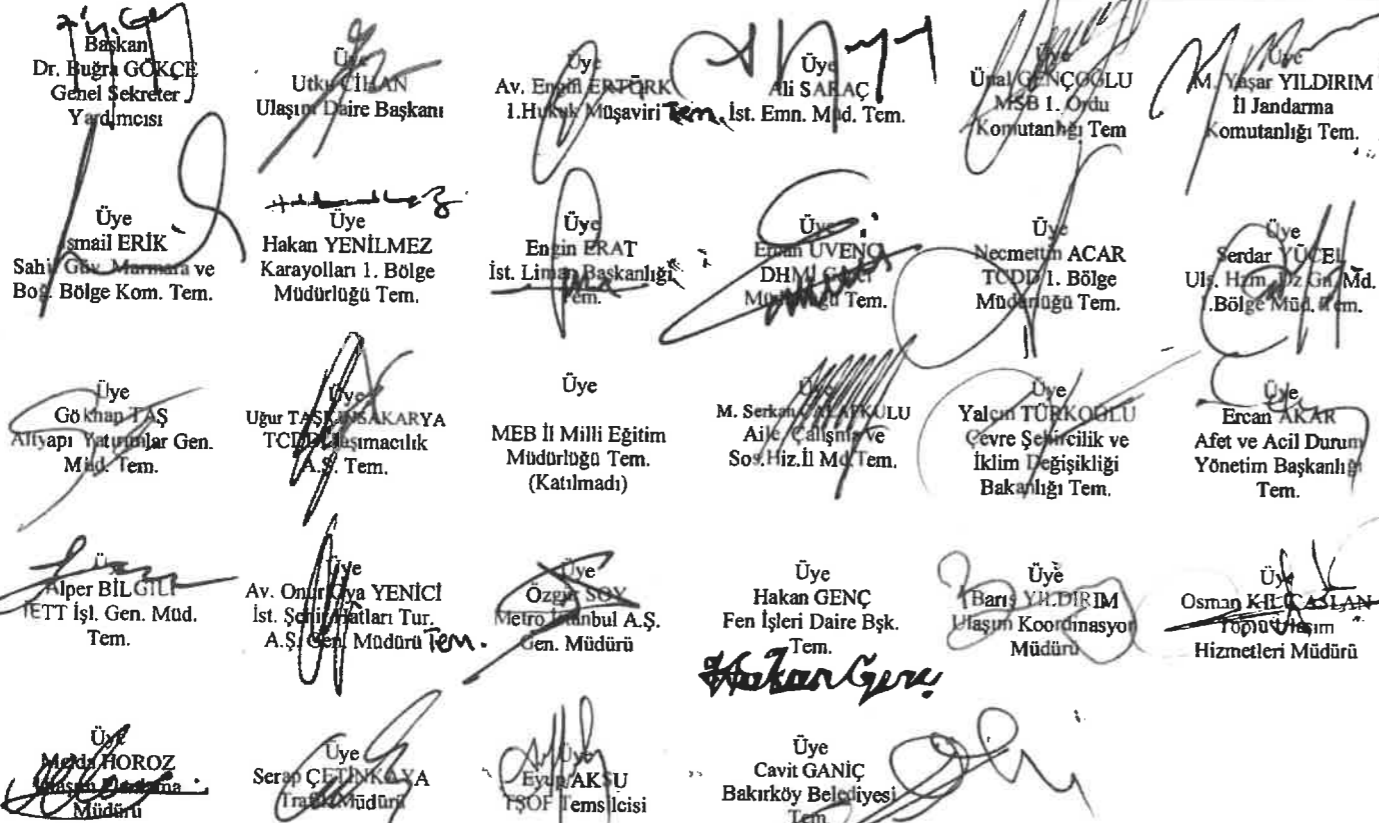 Başkan
Dr. Buğra GÖKÇE
Genel Sekreter
Yardımcısı
Üye
Utku CİHAN
Ulaşım Daire Başkanı
Üye
Av. Engin ERTÜRK
1.Hukuk Müşaviri Tem.
Üye
Ali SARAÇ
İst. Emn. Müd. Tem.
Üye
Ünal GENÇOĞLU
MSB 1. Ordu
Komutanlığı Tem
Üye
M. Yaşar YILDIRIM
İl Jandarma
Komutanlığı Tem.
Üye
İsmail ERİK
Sahil Güv. Marmara ve
Boğ. Bölge Kom. Tem.
Üye
Hakan YENİLMEZ
Karayolları 1. Bölge
Müdürlüğü Tem.
Üye
Engin ERAT
İst. Liman Başkanlığı
Tem.
Üye
DHMİ
Müdürlüğü Tem.
Üye
Necmettin ACAR
TCDD 1. Bölge
Müdürlüğü Tem.
Üye
Serdar YÜCEL
Ulş. Hzm. Dz Gn. Md.
1.Bölge Müd. Tem.
Üye
Gökhan TAŞ
Altyapı Yatırımlar Gen.
Müd. Tem.
Üye
Uğur TAŞKINSAKARYA
TCDD Taşımacılık
A.Ş. Tem.
Üye
MEB İl Milli Eğitim
Müdürlüğü Tem.
(Katılmadı)
Üye
M. Serkan
Aile, Çalışma ve
Sos.Hiz.İl Md.Tem.
Üye
Yalçın TÜRKOĞLU
Çevre Şehircilik ve
İklim Değişikliği
Bakanlığı Tem.
Üye
Ercan AKAR
Afet ve Acil Durum
Yönetim Başkanlığı
Tem.
Üye
Alper BİLGİLİ
İETT İşl. Gen. Müd.
Tem.
Üye
Av. Onur Oya YENİCİ
İst. Şehir Hatları Tur.
A.Ş. Gen. Müdürü Tem.
Üye
Özgür SOY
Metro İstanbul A.Ş.
Gen. Müdürü
Üye
Hakan GENÇ
Fen İşleri Daire Bşk.
Tem.
Hakan Genç
Üye
Barış YILDIRIM
Ulaşım Koordinasyon
Müdürü
Üye
Osman KILIÇASLAN
Toplu Ulaşım
Hizmetleri Müdürü
Üye
Melda HOROZ
Ulaşım Planlama
Müdürü
Üye
Serap ÇETİNKAYA
Trafik Müdürü
Üye
Eyüp AKSU
TŞOF Temsilcisi
Üye
Cavit GANİÇ
Bakırköy Belediyesi
Tem